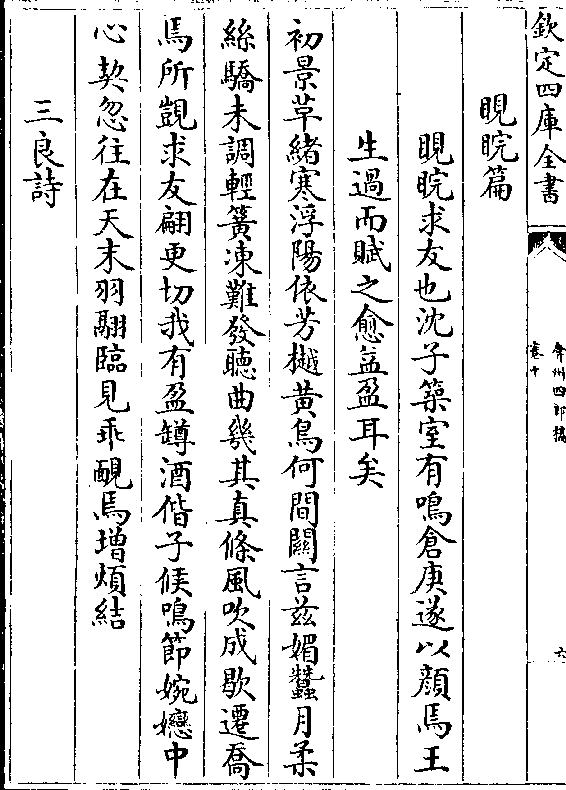 欽定四庫全書
弇州四部稿
卷十
六
睍睆篇
睍睆求友也沈子築室有鳴倉庚遂以顔焉王
生過而賦之愈益盈耳矣
初景草緒寒浮陽依芳樾黄鳥何間闗言兹媚蠶月柔
絲驕未調輕簧凍難發聴曲幾其真條風吹成歇遷喬
焉所覬求友翩更切我有盈罇酒偕子候鳴節婉孌中
心契忽往在天末羽翮臨見乖靦焉增煩結
三良詩